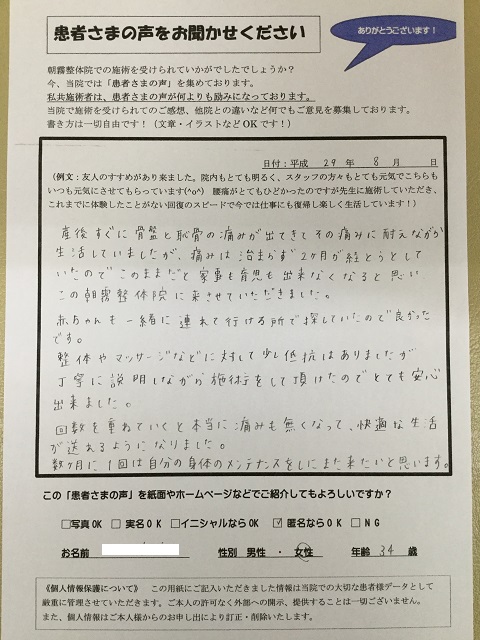 患者さまの声をお聞かせください
ありがとうございます！
朝霧整体院での施術を受けられていかがでしたでしょうか？
今、当院では「患者さまの声」を集めております。
私共施術者は、患者さまの声が何よりも励みになっております。
当院で施術を受けられてのご感想、他院との違いなど何でもご意見を募集しております。
書き方は一切自由です！（文章・イラストなどOKです！）
日付：平成 29 年 8 月 日
（例文：友人のすすめがあり来ました。院内もとても明るく、スタッフの方々もとても元気でこちらも
いつも元気にさせてもらっています(^o^) 腰痛がとてもひどかったのですが先生に施術していただき、
これまでに体験したことがない回復のスピードで今では仕事にも復帰し楽しく生活しています！）
産後すぐに骨盤と恥骨の痛みが出てきてその痛みに耐えながら
生活していましたが、痛みは治まらず2ヶ月が経とうとして
いたのでこのままだと家事も育児も出来なくなると思い
この朝霧整体院に来させていただきました。
赤ちゃんも一緒に連れて行ける所で探していたので良かった
です。
整体やマッサージなどに対して少し抵抗はありましたが
丁寧に説明しながら施術をして頂けたのでとても安心
出来ました。
回数を重ねていくと本当に痛みも無くなって、快適な生活
が送れるようになりました。
数ヶ月に1回は自分の身体のメンテナンスをしにまた来たいと思います。
この「患者さまの声」を紙面やホームページなどでご紹介してもよろしいですか？
□写真OK □実名OK □イニシャルならOK ☑匿名ならOK □NG
お名前 性別 男性 ・ 女性 年齢 34 歳
《個人情報保護について》 この用紙にご記入いただきました情報は当院での大切な患者様データとして
厳重に管理させていただきます。ご本人の許可なく外部への開示、提供することは一切ございません。
また、個人情報はご本人様からのお申し出により訂正・削除いたします。